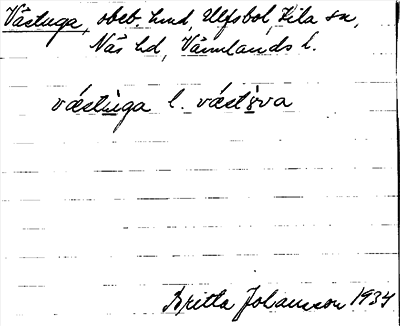 Västuga, obeb. hmd, Ulfsbol, Kila sn,
Näs hd, Värmlands l.
västùga l. väst𝑜̀va
Britta Johansson 1934